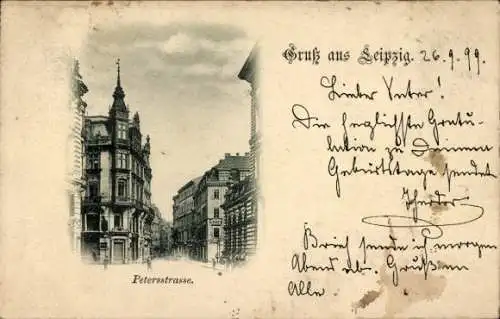 Gruß aus Leipzig. 26.9.99.
Lieber Vater!
Die herzlichste Gratu-
lation zu Deinem
Geburtstage sendet
Theodor
Brief sende ich morgen
Abend ab. Grüße an
Alle.
Petersstrasse.